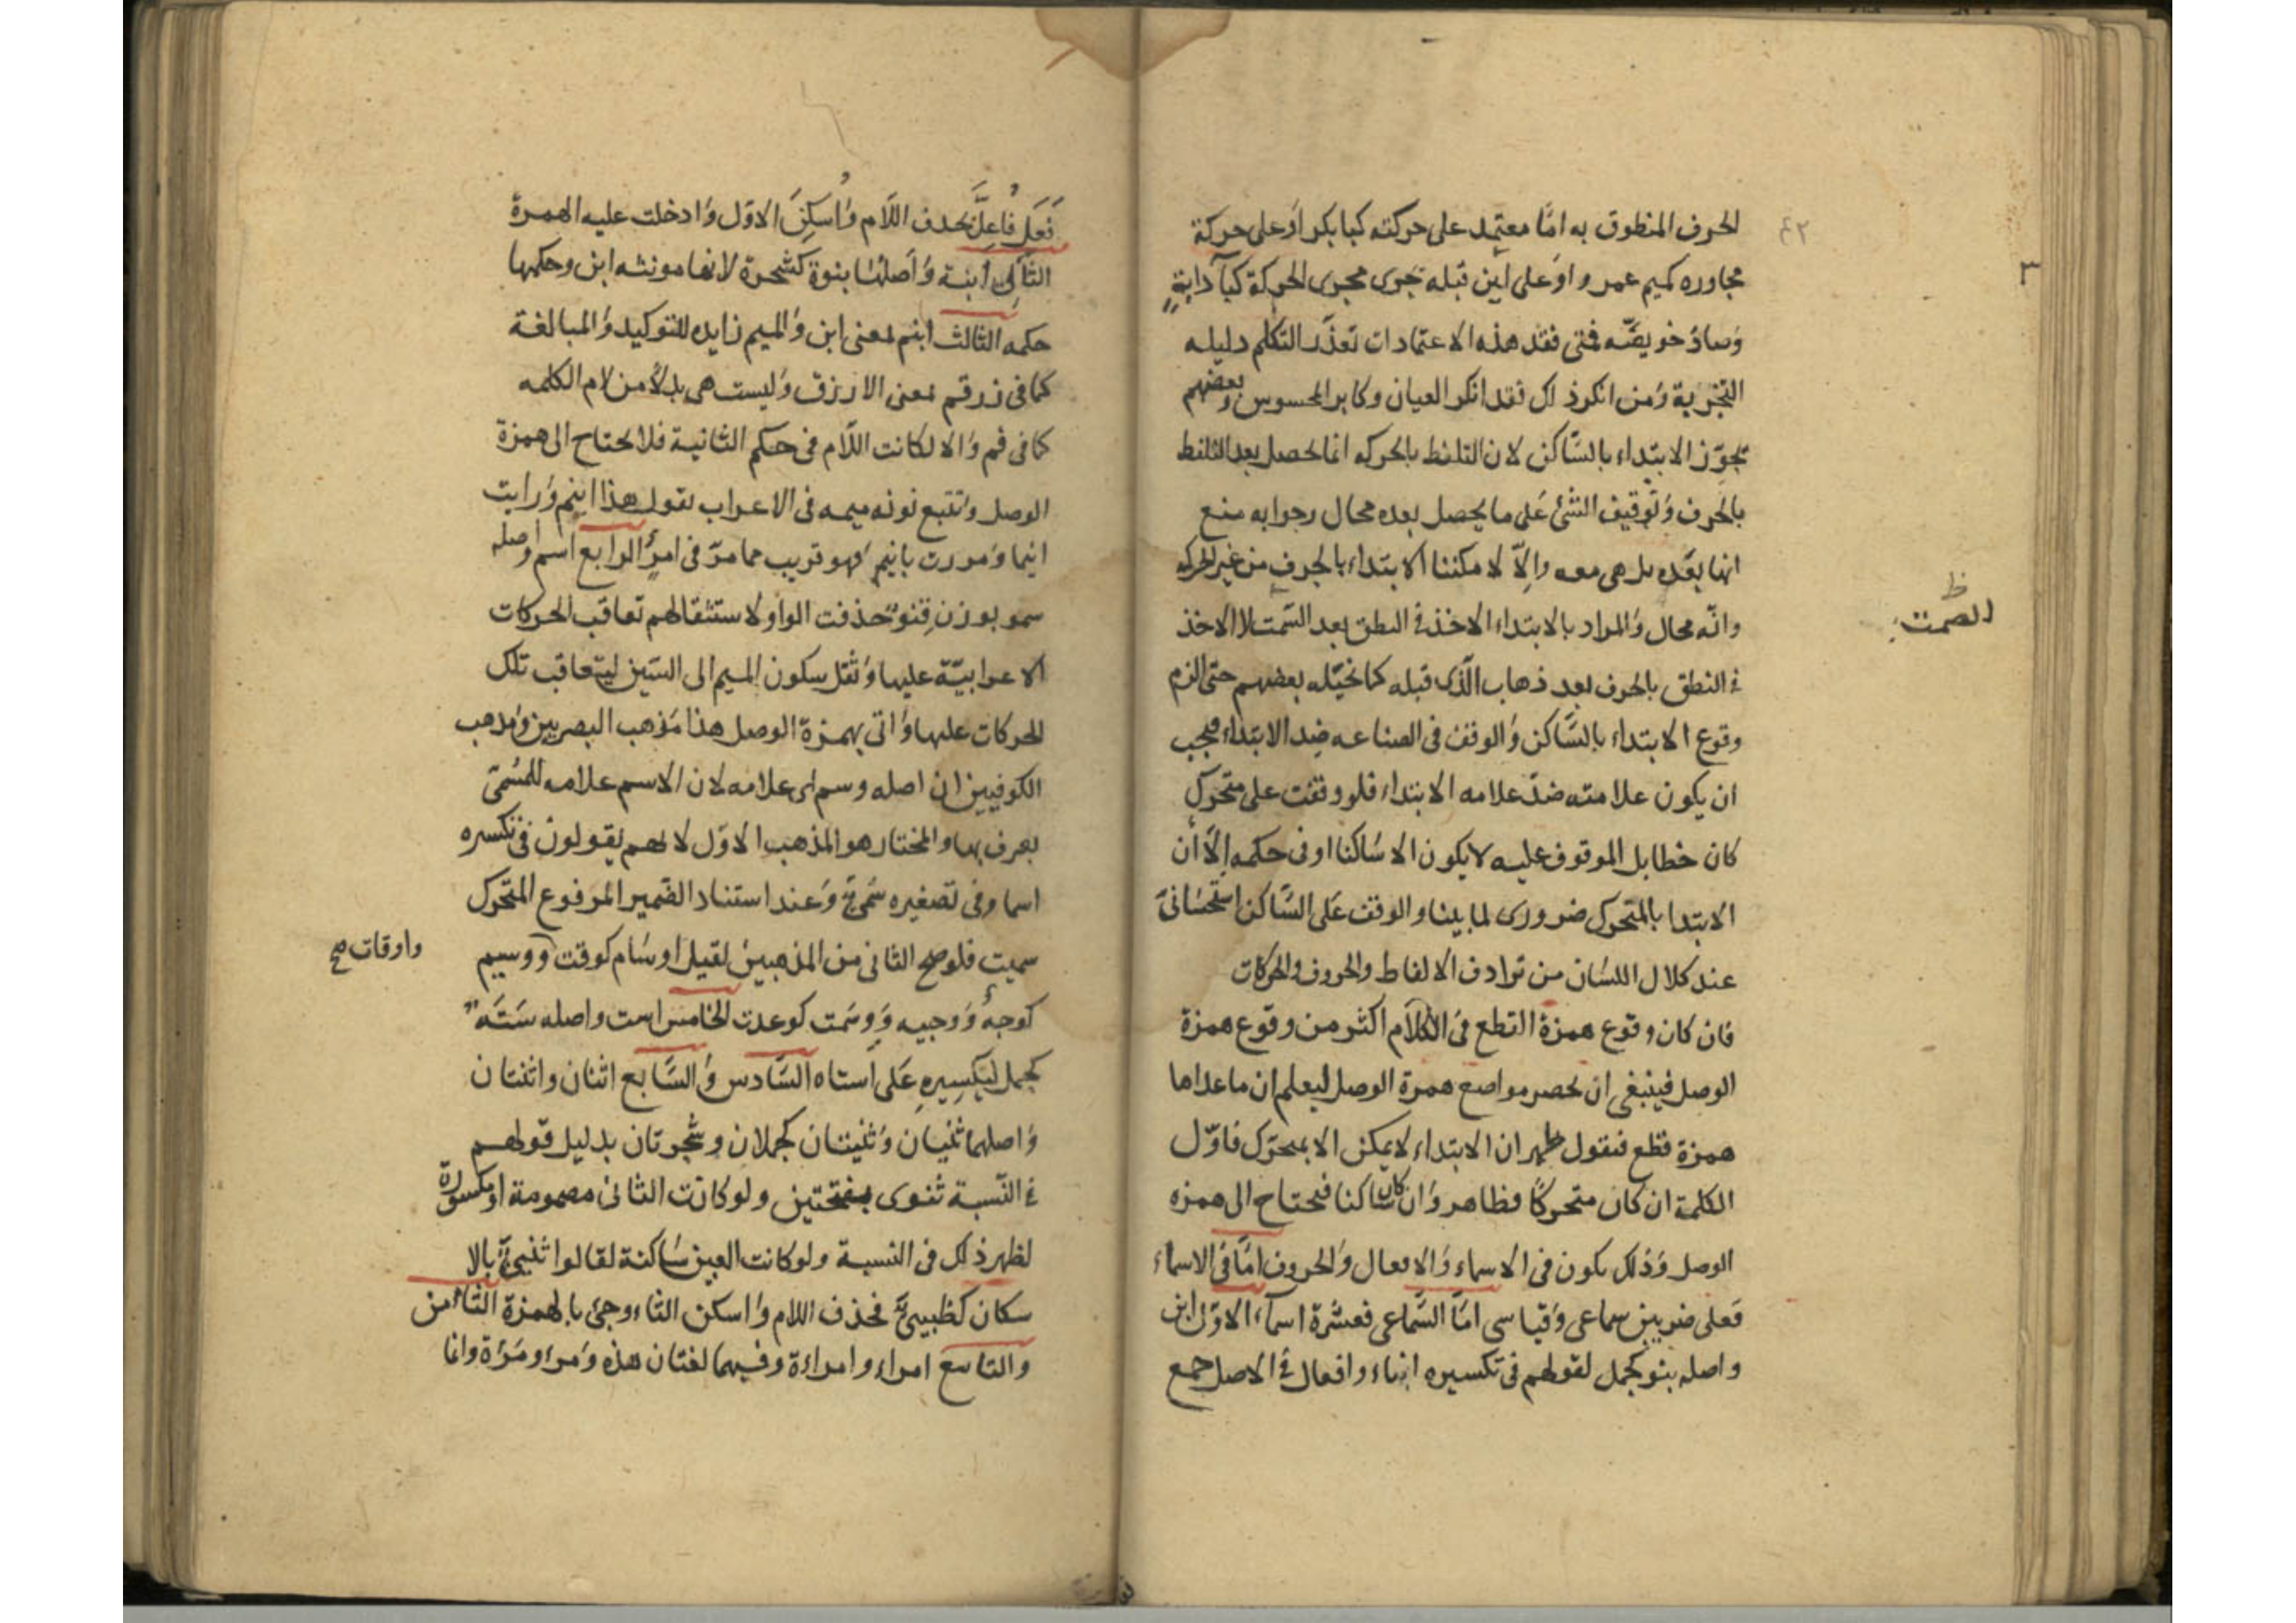 ٤٢
٣
الحرف المنطوق به امّا معتمد على حركته كبا بكر اَو على حركة
مجاوره كميم عمرو او على لين قبله جَرى مجرى الحركة كبآ دابةٍ
وَصادْ خويصّه فمتى فقد هذه الاعتمادات تعذّر التكلم دليله
التجربة وَمن انكر ذلك فقد انكر العيان وكابر المحسوس وبعضهم
تجوّز الابتداء بالسّاكن لان التلفظ بالحركه انما تحصل بعد التلفظ
بالحرف وَتوقيف الشئ عَلى ما يحصل بعده محال وجوابه منع
انها بعَده بل هى معه واِلاّ لا مكننا الابتداء بالحرف من غير الحركه
وانّه محال وَالمراد بالابتداء الاخذ فى النطق بعد السَّمت لا الاخذ
الصمت ظ
فى النطق بالحرف بعد ذهاب الّذى قبله كما تخيّله بعضهم حتى الزم
وقوع الابتداء بالسَّاكن وَالوقف فى الصناعه ضِد الابتداء فيجب
ان يكون علامته ضدّ علامه الابتداء فلو وقفت على متحرك
كان خطا بل الموقوف عليه لا يكون الا سَاكنا او فى حكمه اِلاَّ أن
الابتدا بالمتحرك ضرورى لما بينا والوقف عَلى السَّاكن استحسَانىَّ
عند كلال اللسَان من ترادف الالفاظ والحروف والحركات
فان كان وقوع همزة القطع فى الكلاَم اكثر من وقوع همزة
الوصل فينبغى ان نحصر مواضع همزة الوصل ليعلم ان ما عداها
همزة قطع فنقول ظهر ان الابتداء لا يمكن الا بمتحرّك فاوّل
الكلمة ان كان متحركًا فظاهر وَان كان سَاكنا فيحتاج الى همزه
الوصل وَذلك يكون فى الاسماء وَالافعال وَالحروف امّا فى الاسماء
فَعلى ضربين سماعى وَقياسى امّا السَّماعى فعشَرة اسمآء الاوّل ابن
واصله بنو كجمل لقولهم فى تكسيره ابناء وافعال فى الاصل جمع
فَعَل فَاعِلَّ بحذف اللاَم وَاُسكِنَ الاوّل وَادخلت عليه الهمزة
الثانى ابنة وَاَصلُهَا بنوة كشجرة لانها مونثه ابن وحكمها
حكمه الثالث ابنم بمعنى ابن وَالميم زايده للتوكيد وَالمبالغة
كما فى زرقم بمعنى الازرق وَليست هى بدلاً من لام الكلمه
كما فى فم وَالا لكانت اللاَم فى حكم الثانية فلا يحتاج الى همزة
الوصل وَتتبع نونه ميمه فى الاعراب تقول هذا ابنم وَرايت
ابنما وَمررت بابنمٍ فهو قريب مما مرّ فى امرءٍ الرابع اسم واصله
سمو بوزن قنو حُذفت الواو لاستثقالهم تعاقب الحركات
الاعرابيّة عليها وَنقل سكون الميم الى السّين ليتعاقب تلك
الحركات عليها وَاتى بهمزة الوصل هذا مَذهب البصريين وَمذهب
الكوفيين ان اصله وسم اى علامه لان الاسم علامه للمسَمّى
يعرف بها والمختار هو المذهب الاوّل لانهم يقولون فى تكسره
اسما وفى تصغيره سُمىّ وَعند استناد الضمير المرفوع المتحرك
سميت فلو صح الثانى من المذهبين لقيل اوسَام كوقت ووسيم
واوقات صح
كوجهٌ وَوجيه وَوسَمت كوعدت الخامس است واصله سَتَه
كجمل لتكسيرِه عَلى اَستاه السَّادس وَالسَّابع اثنان واثنتان
وَاصلهما ثنيان وَثنيتان كجملان وشجرتان بدليل قولهم
فى النّسبة ثنوى بفتحتين ولو كانت الثانى مضمومة او مكسورة
لظهر ذلك فى النسبة ولو كانت العين سَاكنة لقالوا ثنيىّ بالا
سكان كظبيىّ فحذف اللام وَاسكن الثاء وجئ بالهمزة الثامن
والتاسع امراء وامراءة وفيهما لغتان هذه وَمرا ومَرَاة وانما